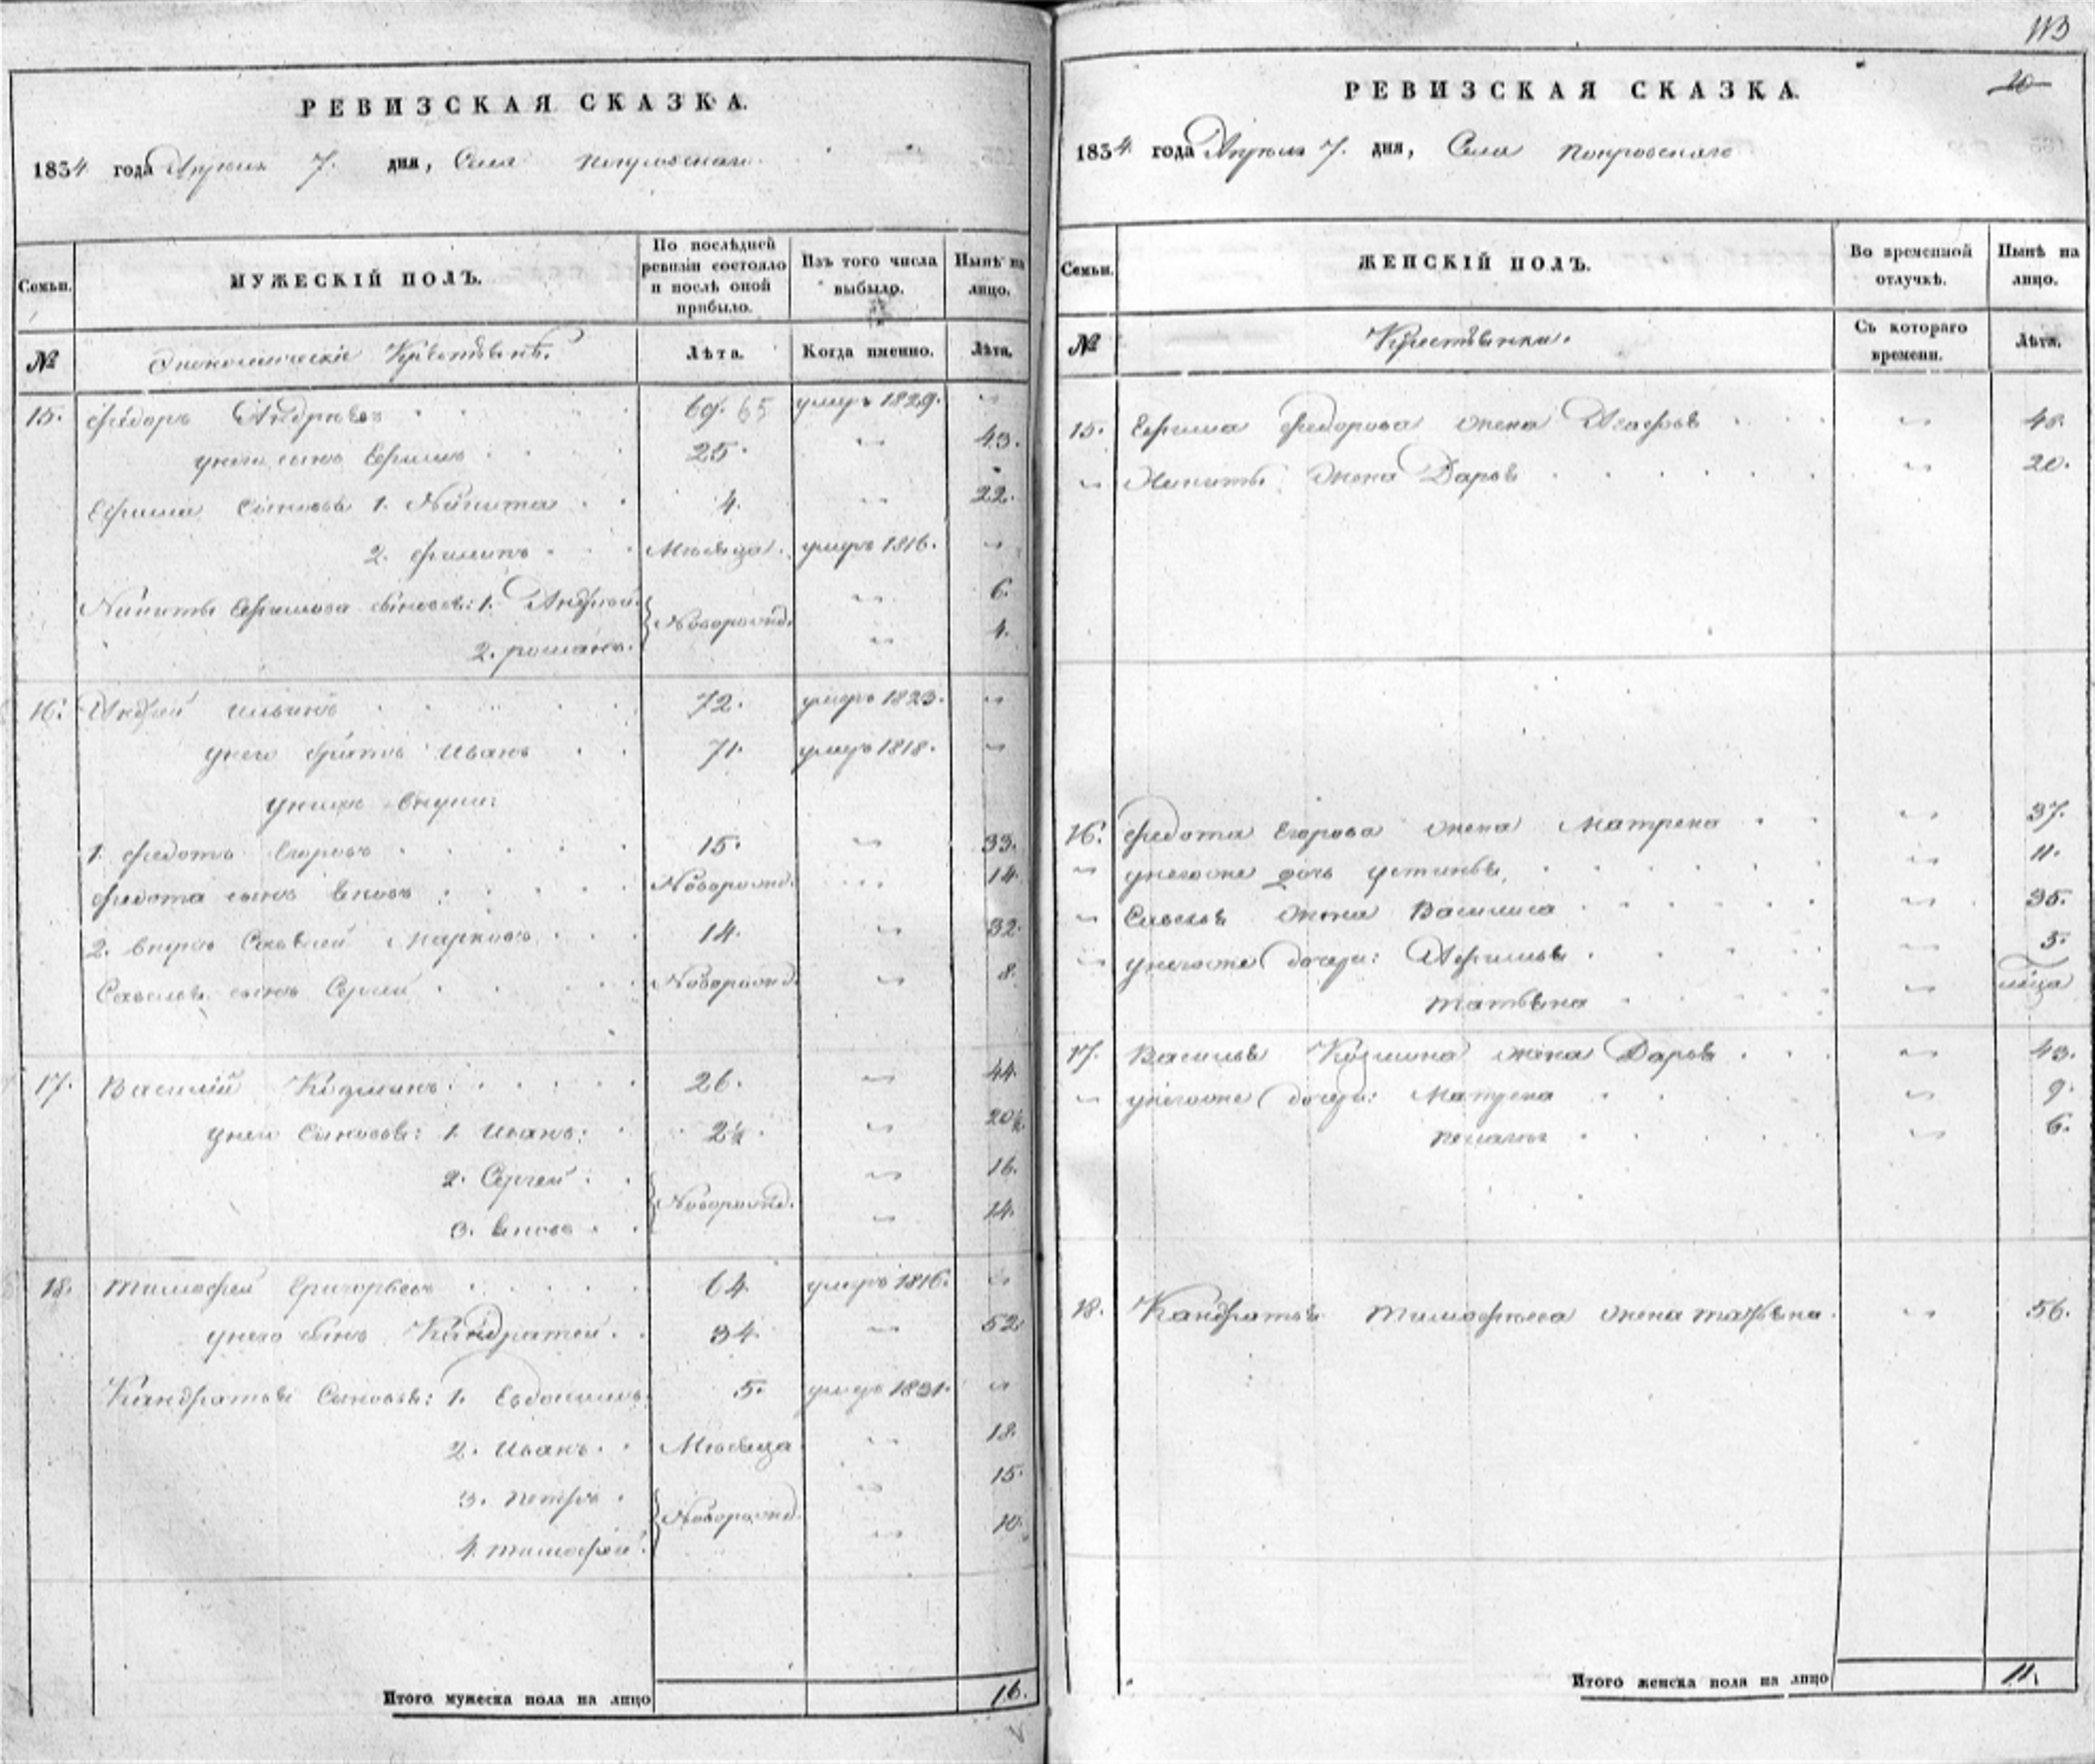 РЕВИЗСКАЯ СКАЗКА.
1834 года Апреля 7. дня, Села Покровскаго.
Семьи.
МУЖЕСКІЙ ПОЛЪ.
По послѣдней ревизіи состояло и послѣ оной прибыло.
Изъ того числа выбыло.
Нынѣ на лицо.
№
Экономическіе Крестьяне.
Лѣта.
Когда именно.
Лѣта.
15. Федоръ Андреевъ 69. 65 умеръ 1829. "
унего сынъ Ефимъ 25. " 43.
Ефима Сыновья 1. Никита 4. " 22.
2. Филипъ Мѣсяца. умеръ 1816. "
Никиты Ефимова сыновья: 1. Андрей Новорожд. " 6.
2. романъ. " 4.
16. Андрей ильинъ 72. умеръ 1823. "
унего братъ Иванъ 71. умеръ 1818. "
унихъ внуки:
1. Федотъ Егоровъ 15. " 33.
Федота сынъ Яковъ Новорожд. " 14.
2. внукъ Савелей Марковъ 14. " 32.
Савелья сынъ Сергей Новорожд. " 8.
17. Василій Козминъ 26. " 44.
унего Сыновья: 1. Иванъ: 2½ " 20½
2. Сергей Новорожд. " 16.
3. Яковъ " 14.
18. Тимофей Григорьевъ 64 умеръ 1816. "
унего сынъ Кандратей 34. " 52
Кандратья Сыновья: 1. Евдокимъ 5. умеръ 1831. "
2. Иванъ Мѣсяца " 18.
3. Петръ Новорожд. " 15.
4. Тимофей " 10.
Итого мужеска пола на лицо 16.
113
10
РЕВИЗСКАЯ СКАЗКА.
1834 года Апреля 7. дня, Села Покровскаго
Семьи.
ЖЕНСКІЙ ПОЛЪ.
Во временной отлучкѣ.
Нынѣ на лицо.
№
Крестьянки.
Съ котораго времени.
Лѣта.
15. Ефима Федорова жена Агафья "
" Никиты жена Дарья " 20.
16. Федота Егорова жена Матрена " 37.
" унегоже дочь устинья " 11.
" Савелья жена Василиса " 35.
" унегоже дочери: Афимья " 5.
Татьяна "
17. Василья Козмина жена Дарья " 43.
" унегоже дочери: Матрена " 9.
" 6.
18. Кандратья Тимофеева жена Татьяна " 56.
Итого женска пола на лицо 11.